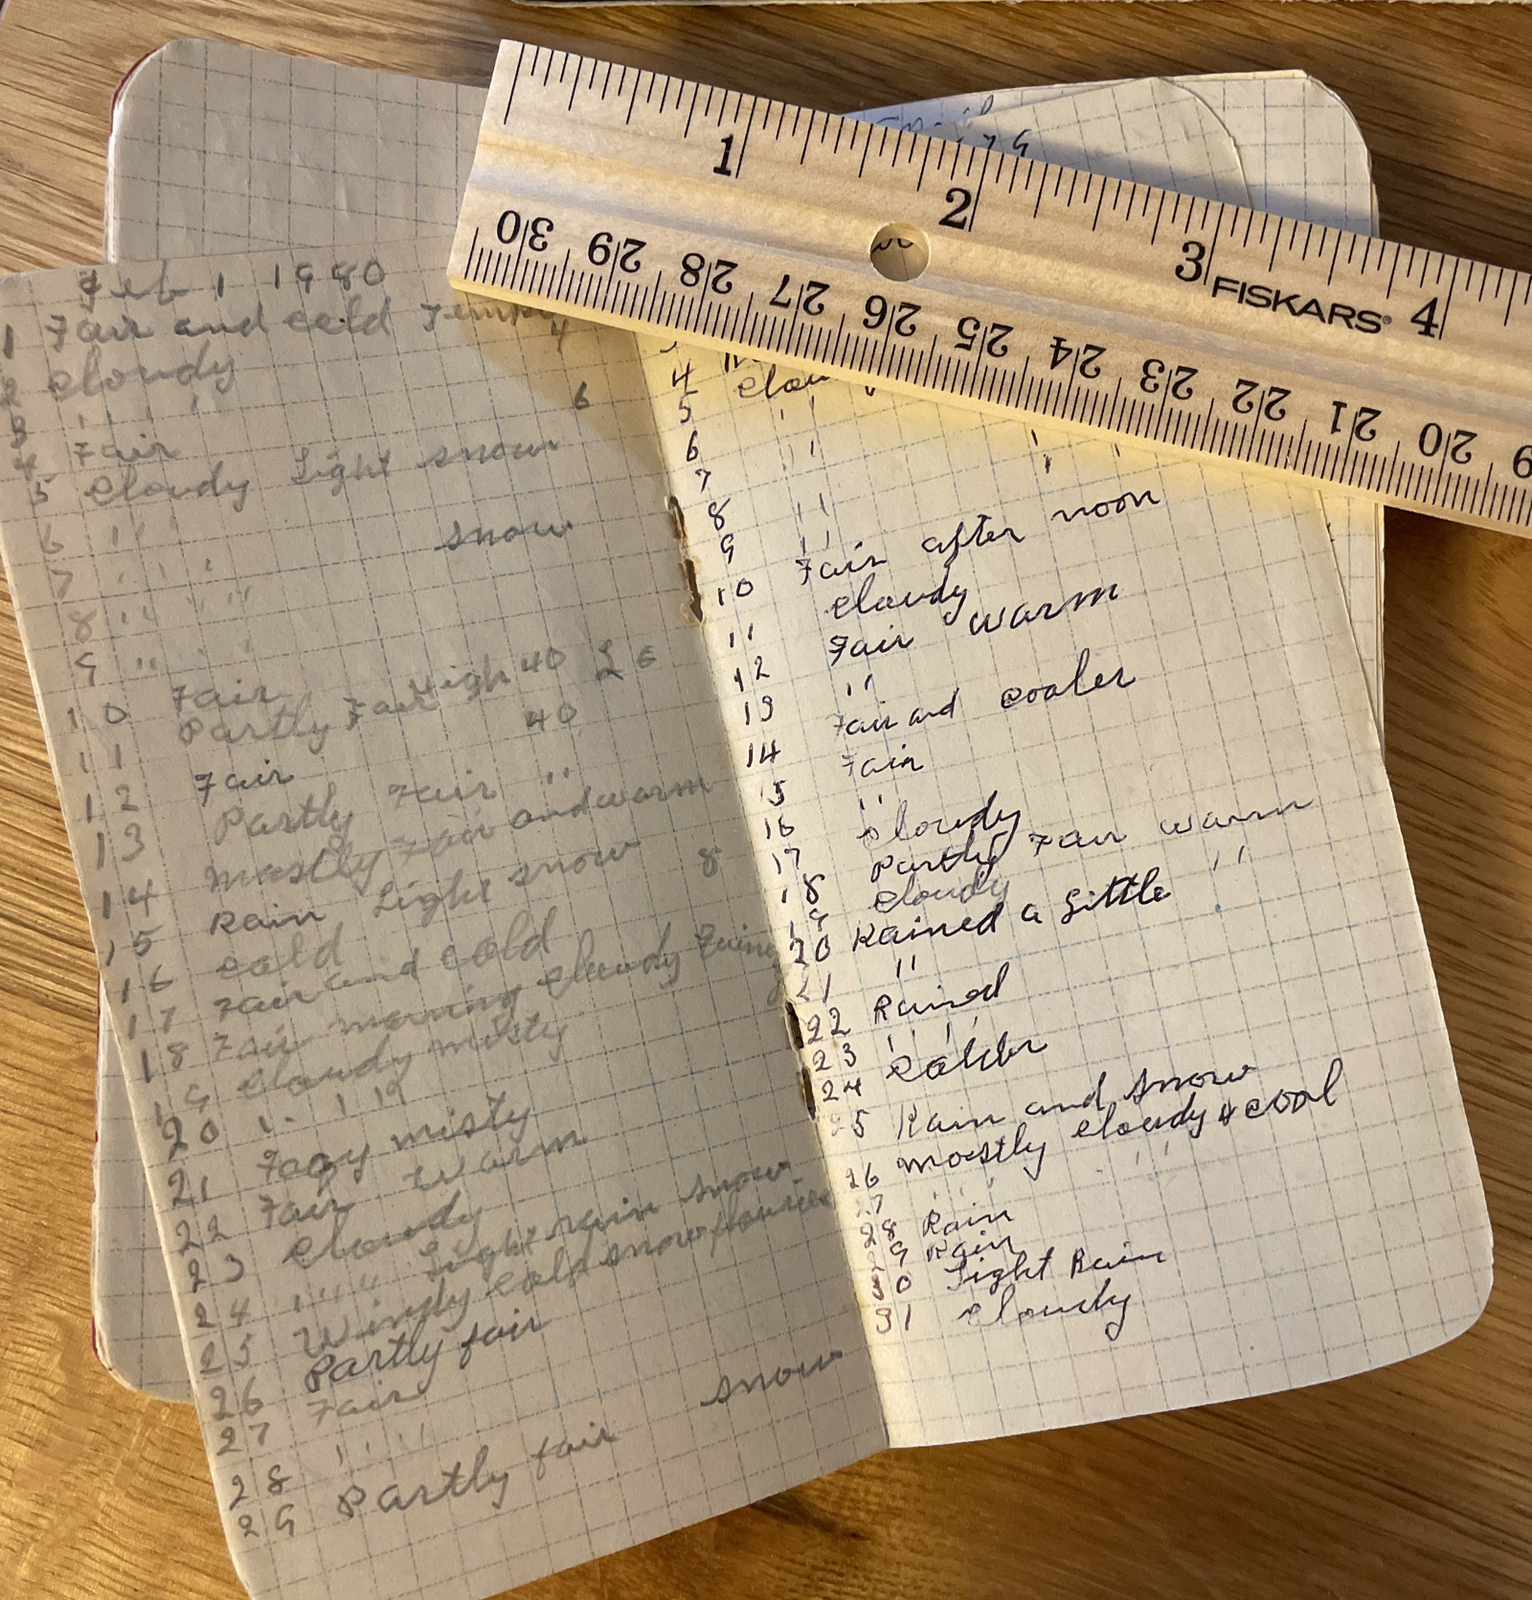 1
2
3
FISKARS
4
30 29 28 27 26 25 24 23 22 21 20
Feb 1 1980
1 Fair and cold
4
2 cloudy
3 " "
6
4 Fair
5 cloudy Light snow
6 " "
snow
7 " "
8 " " " "
9 "
10 Fair
11 Partly Fair High 40
40
12 Fair
13 Partly Fair "
14 mostly Fair and warm
15 Rain Light snow 8
16 cold
17 Fair and cold
18 Fair morning cloudy
19 cloudy misty
20
21 Fogy misty
22 Fair warm
23 cloudy
24 " " Light rain snow
25 Windy cold snow flouries
26 Partly fair
27 Fair
28 " "
snow
29 Partly fair
4
5 "
6 "
7
8 "
9 "
10 Fair after noon
cloudy
11 Fair warm
12 "
13 Fair and cooler
14 Fair
15 "
16 cloudy
17 Partly Fair warm
18 cloudy "
19
20 Rained a little
21 "
22 Rained
23 " "
24 colder
25 Rain and snow
26 mostly cloudy & cool
27 " " "
28 Rain
29 Rain
30 Light Rain
31 cloudy